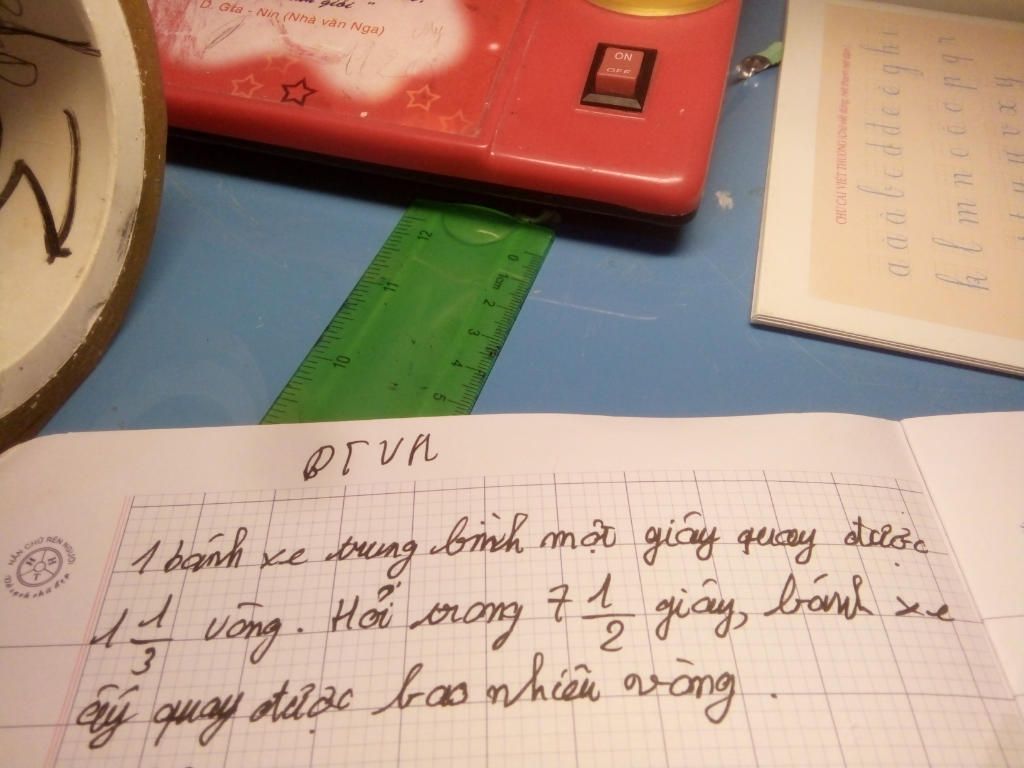 D. Gta - Nin (Nhà văn Nga)
ON
OFF
CHỮ CÁI VIẾT THƯỜNG
a ă â b c d đ e ê g h i
k l m n o ô ơ p q r
u ư v x y
12
11
10
0
1cm
2
3
4
5
ĐTVH
NÉT CHỮ RÈN NGƯỜI
1 bánh xe trung bình một giây quay được
1 1/3 vòng. Hỏi trong 7 1/2 giây, bánh xe
ấy quay được bao nhiêu vòng.